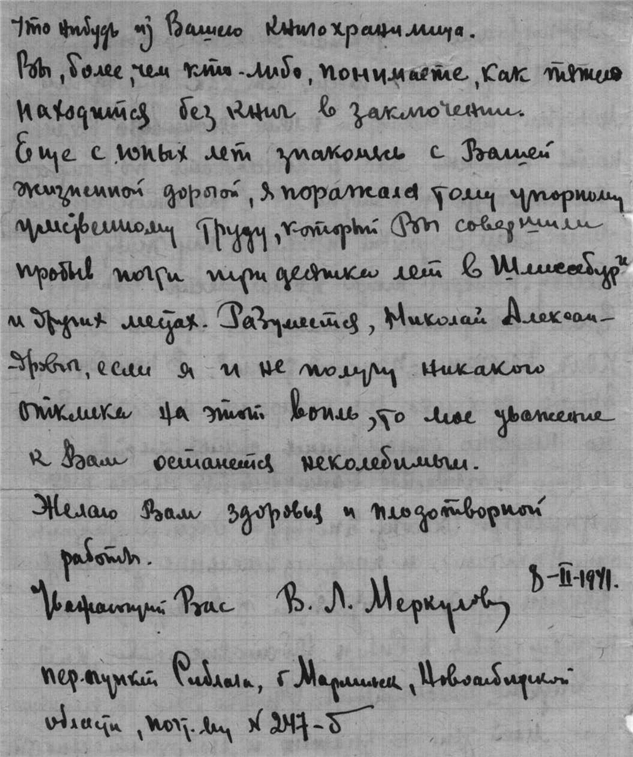 что нибудь из Вашего книгохранилища.
Вы, более, чем кто-либо, понимаете, как тяжело
находится без книг в заключении.
Еще с юных лет знакомясь с Вашей
жизненной дорогой, я поражался тому упорному
умственному труду, который Вы совершили
пробыв почти три десятка лет в
и других местах. Разумеется, Николай Алексан-
-дрович, если я и не получу никакого
отклика на этот вопль, то мое уважение
к Вам останется неколебимым.
Желаю Вам здоровья и плодотворной
работы.
Уважающий Вас В. Л. Меркулов
8-II-1941.
пер.пункт Сиблага, г Мариинск, Новосибирской
области, № 247-б